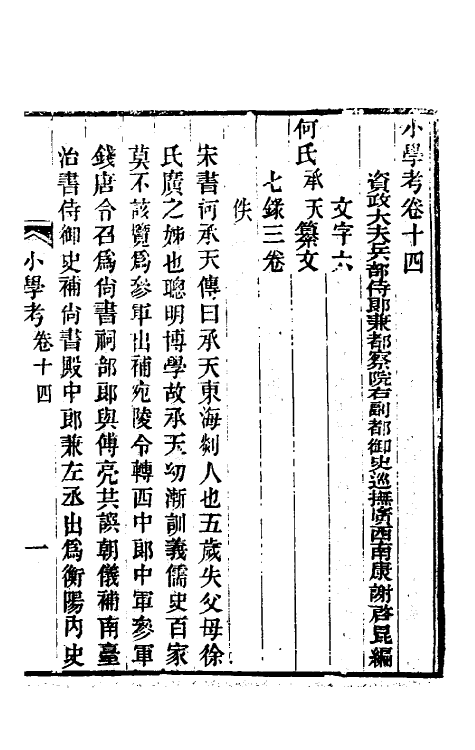 小學考卷十四
資政大夫兵部侍郎兼都察院右副都御史巡撫廣西南康謝啓昆編
文字六
何氏承天纂文
七錄三卷
佚
宋書何承天傳曰承天東海剡人也五歲失父母徐
氏廣之姊也聰明博學故承天幼漸訓義儒史百家
莫不該覽爲參軍出補宛陵令轉西中郎中軍參軍
錢唐令召爲尚書祠部郎與傅亮共譔朝儀補南臺
治書侍御史補尚書殿中郎兼左丞出爲衡陽內史
小學考卷十四
一